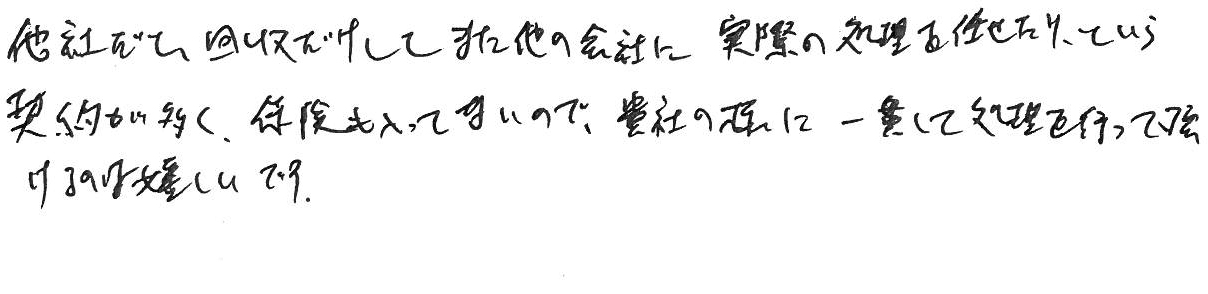 他社だと、回収だけしてまた他の会社に 実際の処理を任せたり、という
契約が多く、保険も入ってないので、貴社の様に 一貫して処理を行って頂
けるのは嬉しいです.